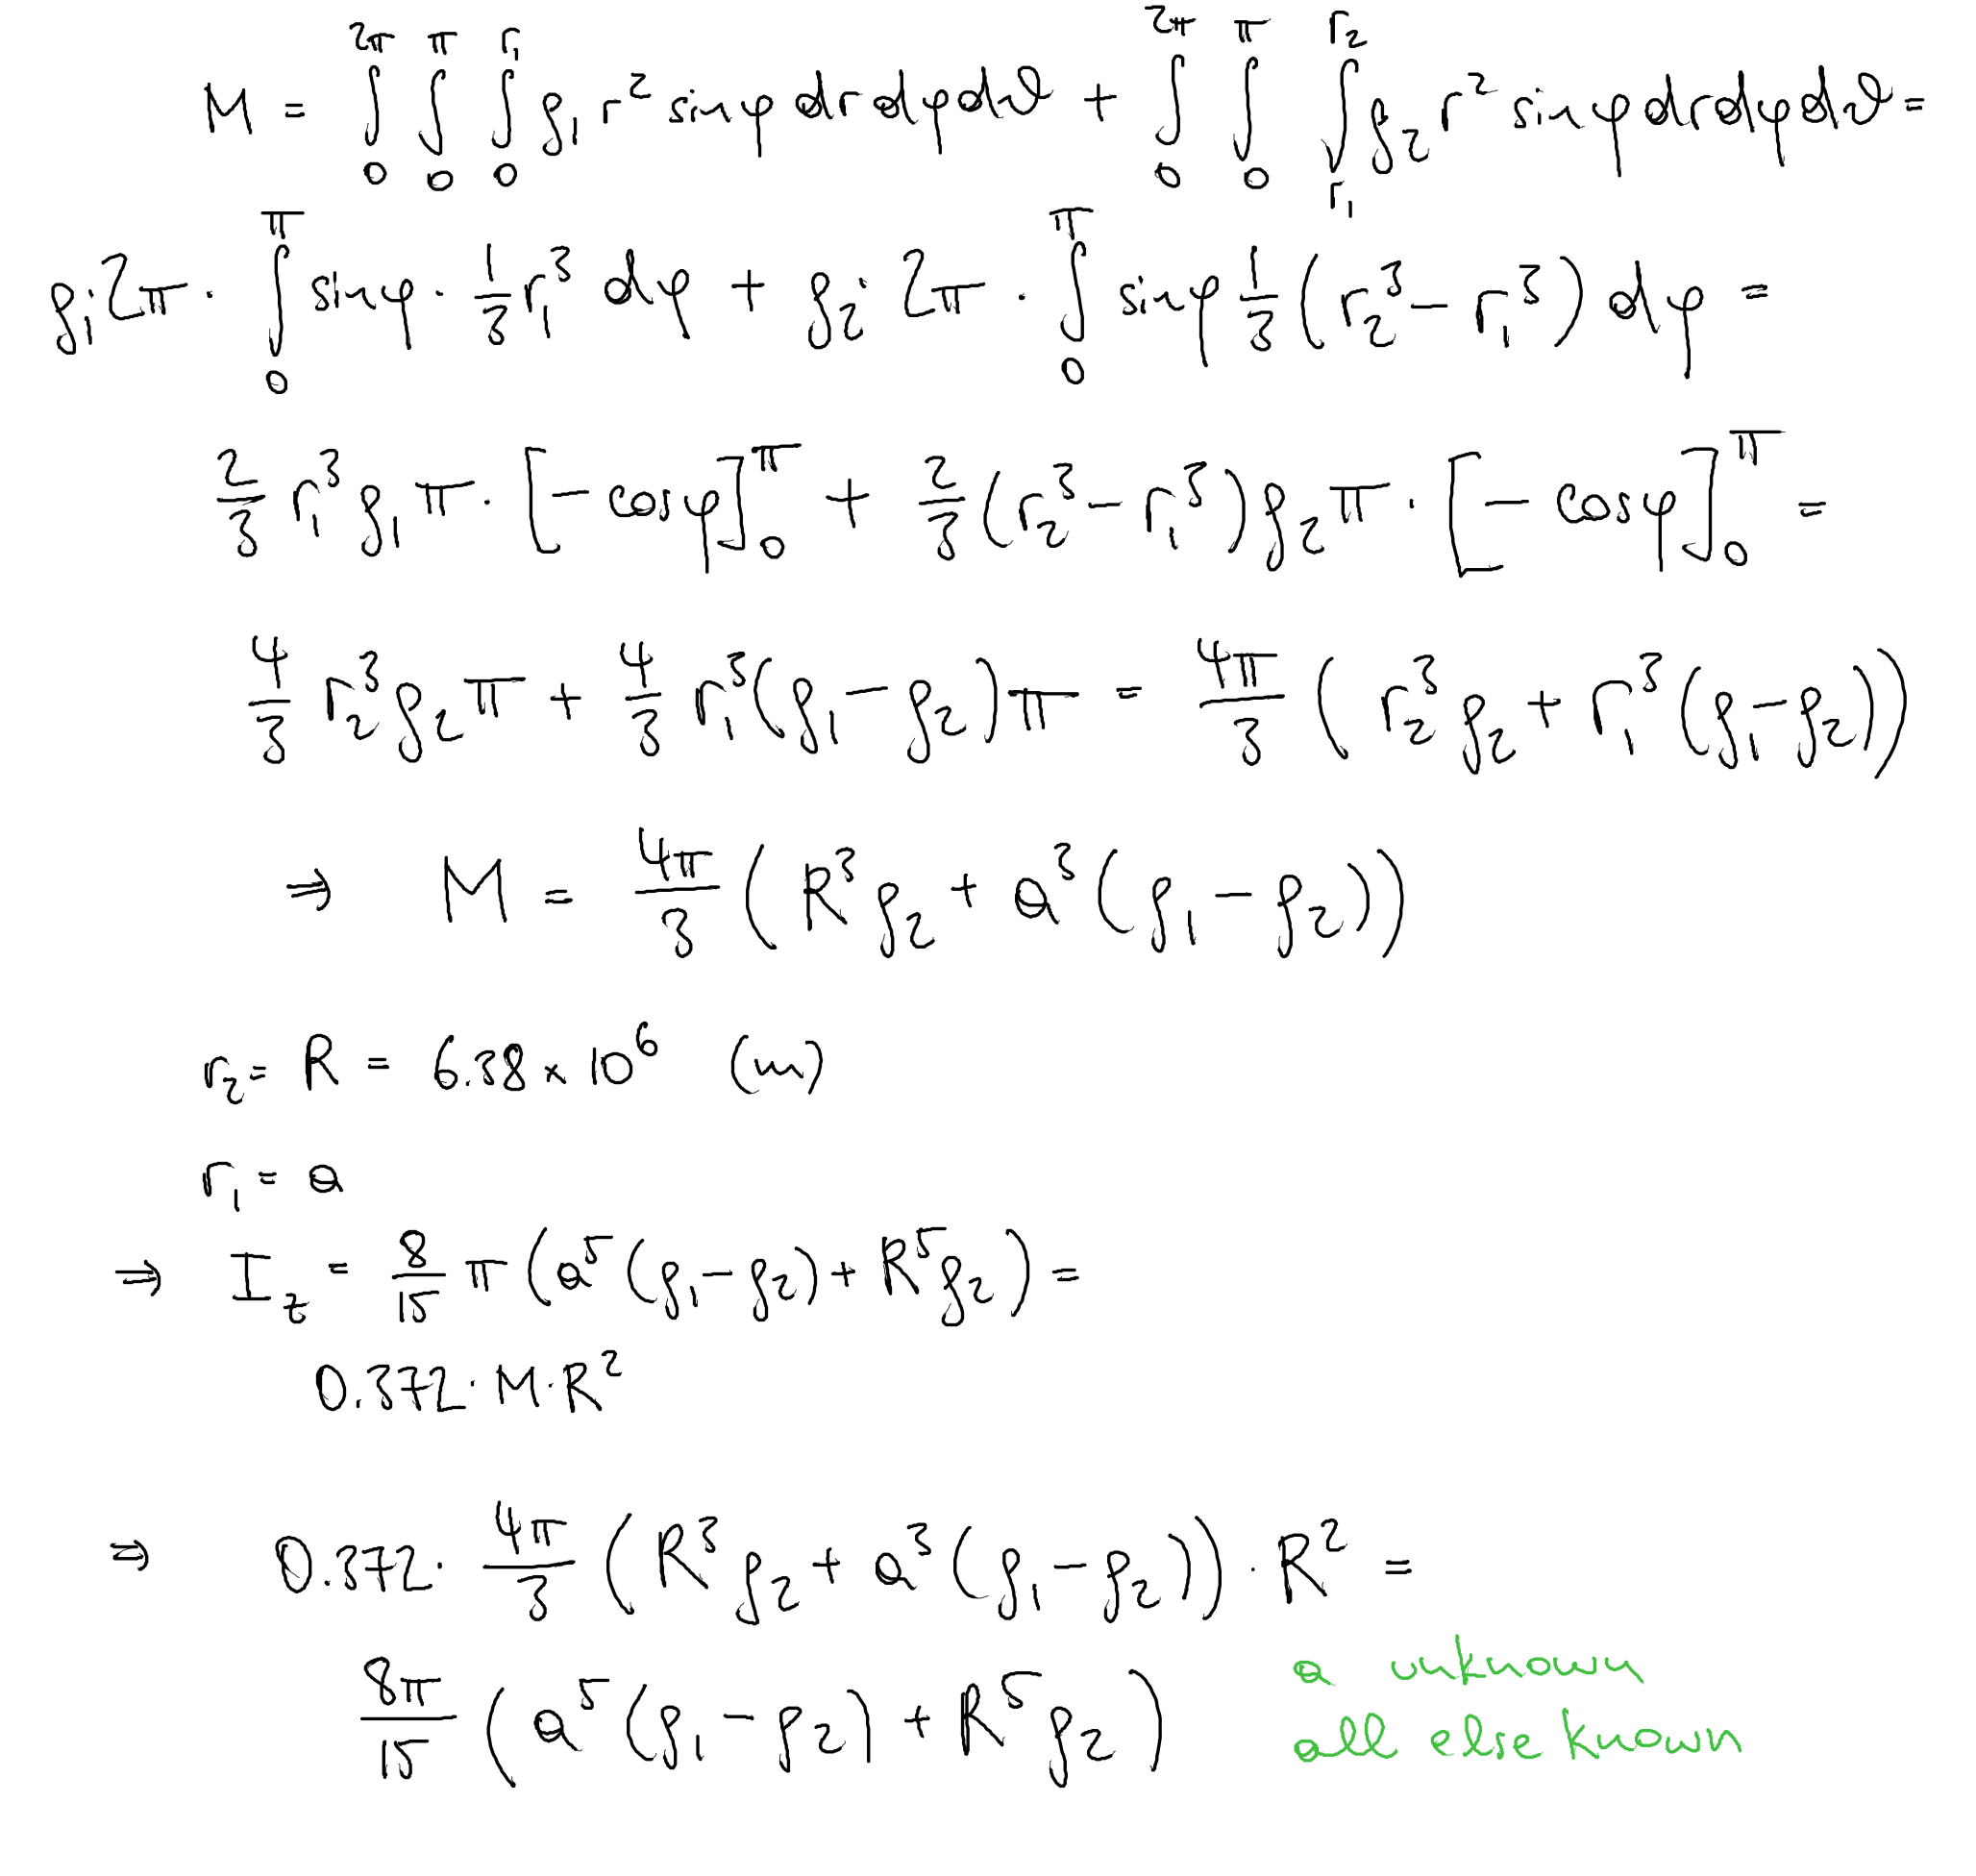 M = ∫₀^{2π} ∫₀^{π} ∫₀^{r₁} ρ₁ r² sinφ dr dφ dϑ + ∫₀^{2π} ∫₀^{π} ∫_{r₁}^{r₂} ρ₂ r² sinφ dr dφ dϑ =
ρ₁ 2π · ∫₀^{π} sinφ · 1/3 r₁³ dφ + ρ₂ 2π · ∫₀^{π} sinφ 1/3 (r₂³ − r₁³) dφ =
2/3 r₁³ ρ₁ π · [− cosφ]₀^{π} + 2/3 (r₂³ − r₁³) ρ₂ π · [− cosφ]₀^{π} =
4/3 r₂³ ρ₂ π + 4/3 r₁³ (ρ₁ − ρ₂) π = 4π/3 ( r₂³ ρ₂ + r₁³ (ρ₁ − ρ₂))
⇒ M = 4π/3 ( R³ ρ₂ + a³ (ρ₁ − ρ₂))
r₂ = R = 6.38 × 10⁶ (m)
r₁ = a
⇒ I_z = 8/15 π (a⁵ (ρ₁ − ρ₂) + R⁵ ρ₂) =
0.372 · M · R²
⇒ 0.372 · 4π/3 ( R³ ρ₂ + a³ (ρ₁ − ρ₂)) · R² =
8π/15 ( a⁵ (ρ₁ − ρ₂) + R⁵ ρ₂ )
a unknown
all else known